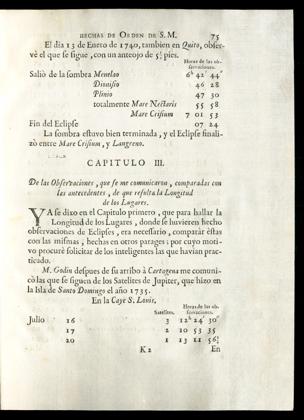 HECHAS DE ORDEN DE S.M. 75
El dia 13 de Enero de 1740, tambien en Quito, obser-
vè el que se sigue, con un anteojo de 5½ pies.
Horas de las ob-
servaciones.
Saliò de la sombra Menelao 6h 42' 44"
Dionisio 46 28
Plinio 47 30
totalmente Mare Nectaris 55 58
Mare Crisium 7 01 53
Fin del Eclipse 07 24
La sombra estuvo bien terminada, y el Eclipse finali-
zò entre Mare Crisium, y Langreno.
CAPITULO III.
De las Observaciones, que se me comunicaron, comparadas con
las antecedentes, de que resulta la Longitud
de los Lugares.
YA se dixo en el Capitulo primero, que para hallar la
Longitud de los Lugares, donde se huvieren hecho
observaciones de Eclipses, era necesario, comparar èstas
con las mismas, hechas en otros parages: por cuyo moti-
vo procurè solicitar de los inteligentes las que havian prac-
ticado.
M. Godin despues de su arribo à Cartagena me comuni-
cò las que se siguen de los Satelites de Jupiter, que hizo en
la Isla de Santo Domingo el año 1735.
En la Caye S. Louis,
Satelites. Horas de las ob-
servaciones.
Julio 16 3 12h 24' 30"
17 2 10 53 35
20 1 13 11 56½
K2 En